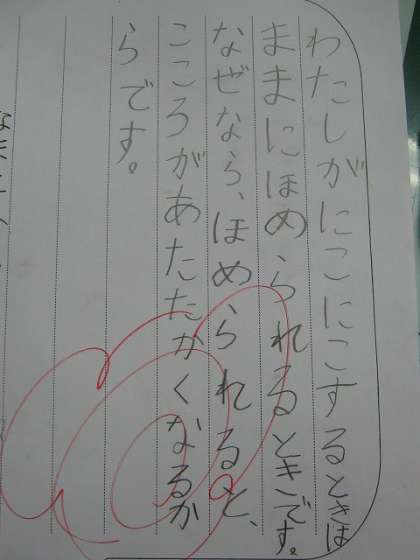 わたしがにこにこするときは
ままにほめられるときです。
なぜなら、ほめられると、
こころがあたたかくなるか
らです。